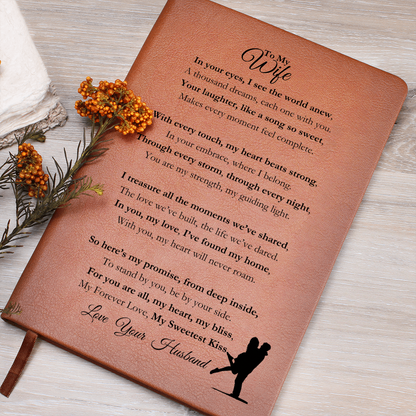 To My
Wife
In your eyes, I see the world anew,
A thousand dreams, each one with you.
Your laughter, like a song so sweet,
Makes every moment feel complete.
With every touch, my heart beats strong,
In your embrace, where I belong.
Through every storm, through every night,
You are my strength, my guiding light.
I treasure all the moments we've shared,
The love we've built, the life we've dared.
In you, my love, I've found my home,
With you, my heart will never roam.
So here's my promise, from deep inside,
To stand by you, be by your side.
For you are all, my heart, my bliss,
My Forever Love, My Sweetest Kiss
Love Your Husband